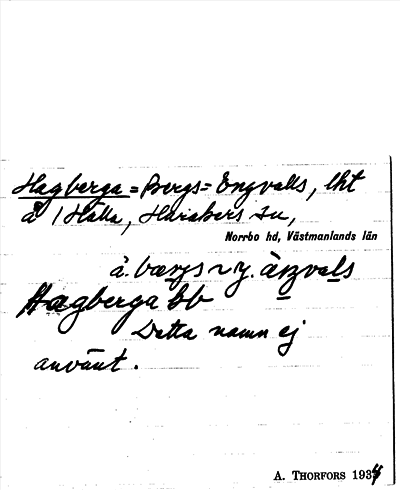 Hagberga = Bergs = Engvalls, lht
å 1 Hälla, Harakers sn,
Norrbo hd, Västmanlands län
Hagberga bb
Detta namn ej
använt.
A. THORFORS 1934